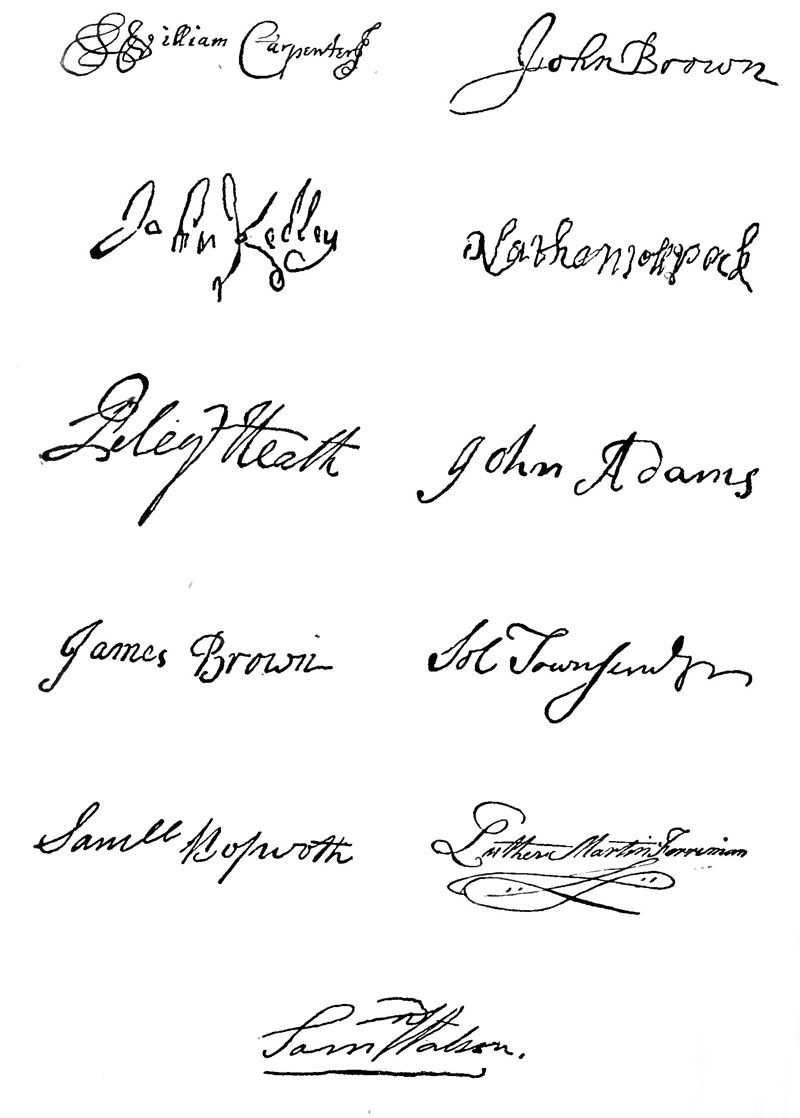 William Carpenter
John Brown
John Kedley
Nathaniell peck
Peleg Heath
John Adams
James Brown
Sol Townsend
Samll Bosworth
Luther Martin Ferriman
Sam Watson.